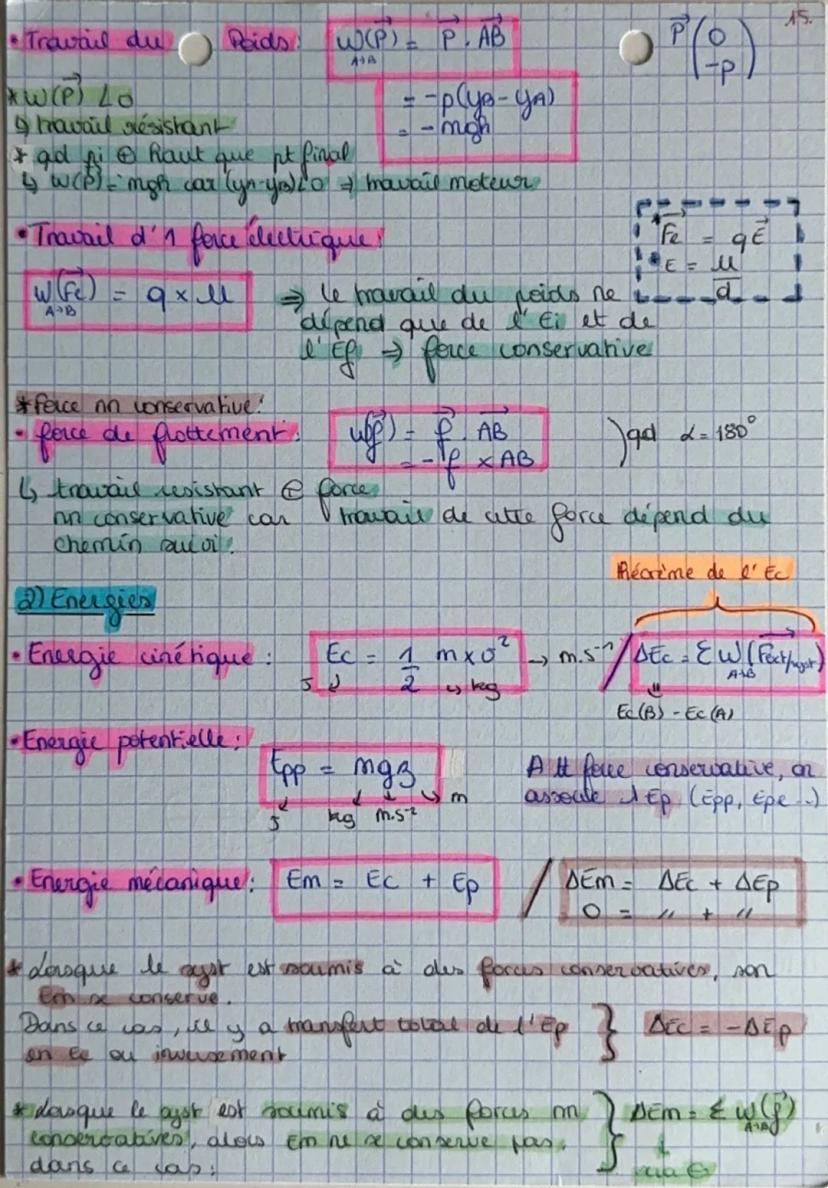 15.
• Travail du Poids: W(P⃗) = P⃗ . AB⃗
A→B
P⃗ (0
-P)
* W(P⃗) < 0
= -p(yB - yA)
↳ travail résistant
= - mgh
* qd pi ⊕ haut que pt final
↳ W(P⃗) = mgh car (yA-yB)<0 ⇒ travail moteur
• Travail d'1 force électrique:
F⃗e = qE⃗
* E = U
d
W(F⃗e) = q x U
A→B
⇒ le travail du poids ne
dépend que de l'Ei et de
l'Ef ⇒ force conservative
* force nn conservative:
• force de frottement: W(f⃗) = f⃗ . AB⃗ ) qd α = 180°
= - f x AB
↳ travail resistant ⊕ force
nn conservative car travail de cette force dépend du
chemin suivi.
Théorème de l'Ec
2) Energies
• Energie cinétique : Ec = 1/2 m x v² → m.s⁻¹ / ΔEc = Σ W(F⃗ext/syst)
A→B
J kg
Ec(B) - Ec(A)
• Energie potentielle:
Epp = mgz
J kg m.s⁻² m
A tt force conservative, on
associe 1 Ep (Epp, Epe ..)
• Energie mécanique: Em = Ec + Ep / ΔEm = ΔEc + ΔEp
0 = " + "
* Lorsque le syst est soumis à des forces conservatives, son
Em se conserve.
Dans ce cas, il y a transfert total de l'Ep } ΔEc = -ΔEp
en Ec ou inversement
* Lorsque le syst est soumis à des forces nn } ΔEm = Σ W(f⃗)
A→B
conservatives, alors Em ne se conserve pas.
dans ce cas: